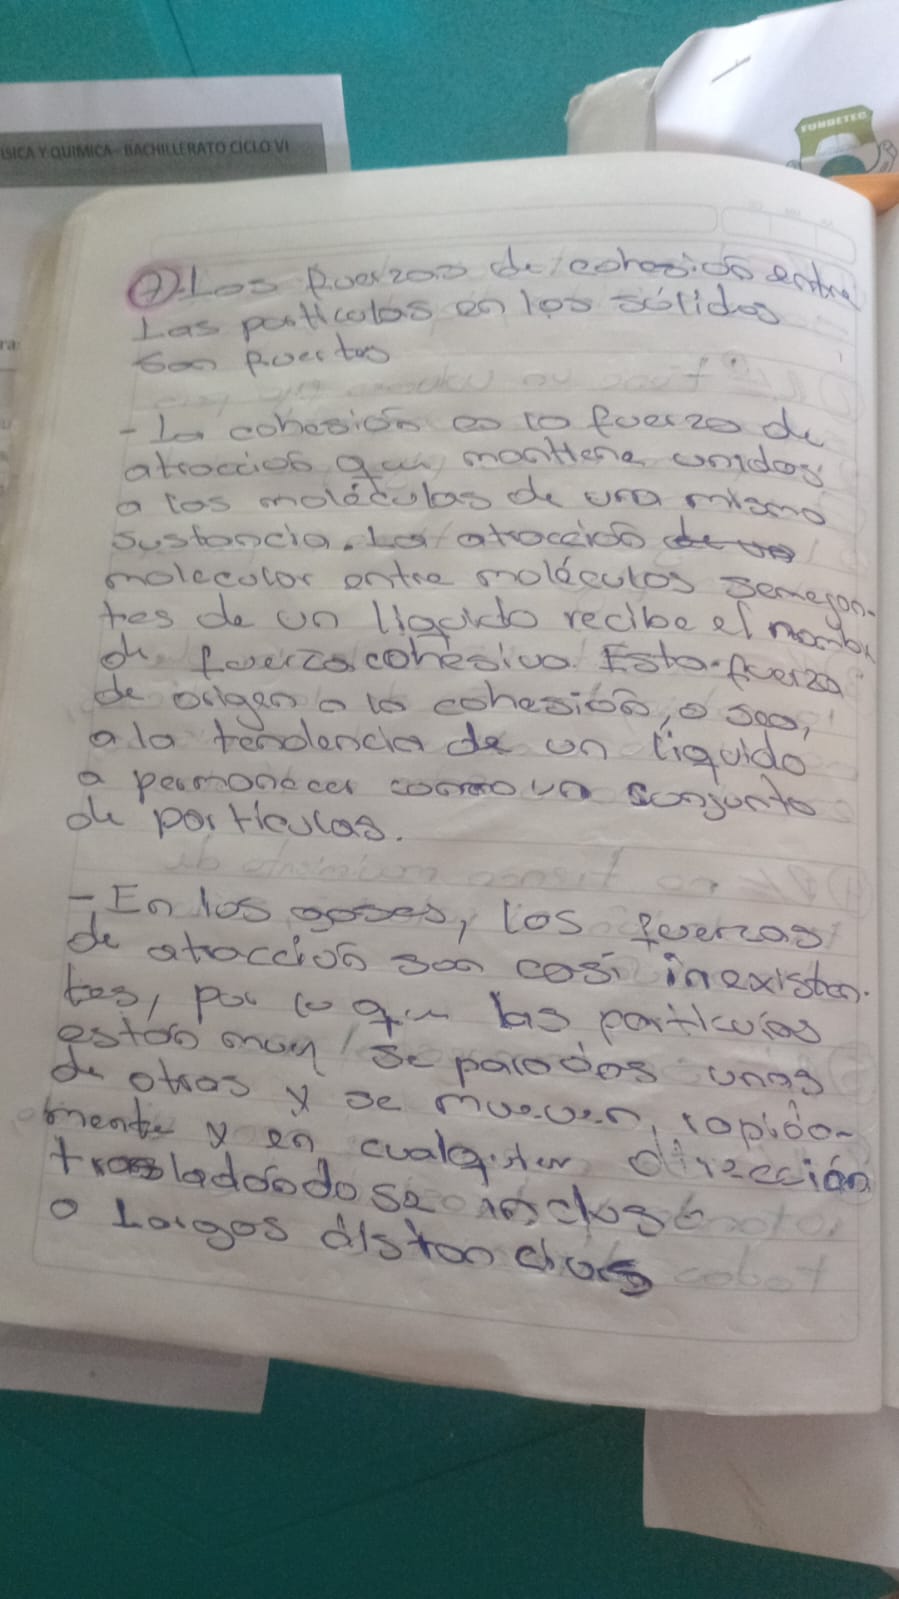 ISICA Y QUIMICA - BACHILLERATO CICLO VI
FUNDETEC
ra:
7). Las fuerzas de cohesión entre
Las particulas en los sólidos
son fuertes
- La cohesión es la fuerza de
atracción que mantiene unidas
a las moléculas de una misma
sustancia. La atracción
molecular entre moléculas semejan-
tes de un liquido recibe el nombre
de fuerza cohesiva. Esta fuerza
de origen a la cohesión, o sea,
a la tendencia de un liquido
a permanecer como un conjunto
de particulas.
- En los gases, las fuerzas
de atracción son casi inexisten-
tes, por lo que las particulas
están muy separadas unas
de otras y se mueven, rapida-
mente y en cualquier dirección
trasladándose incluso
a Largas distancias